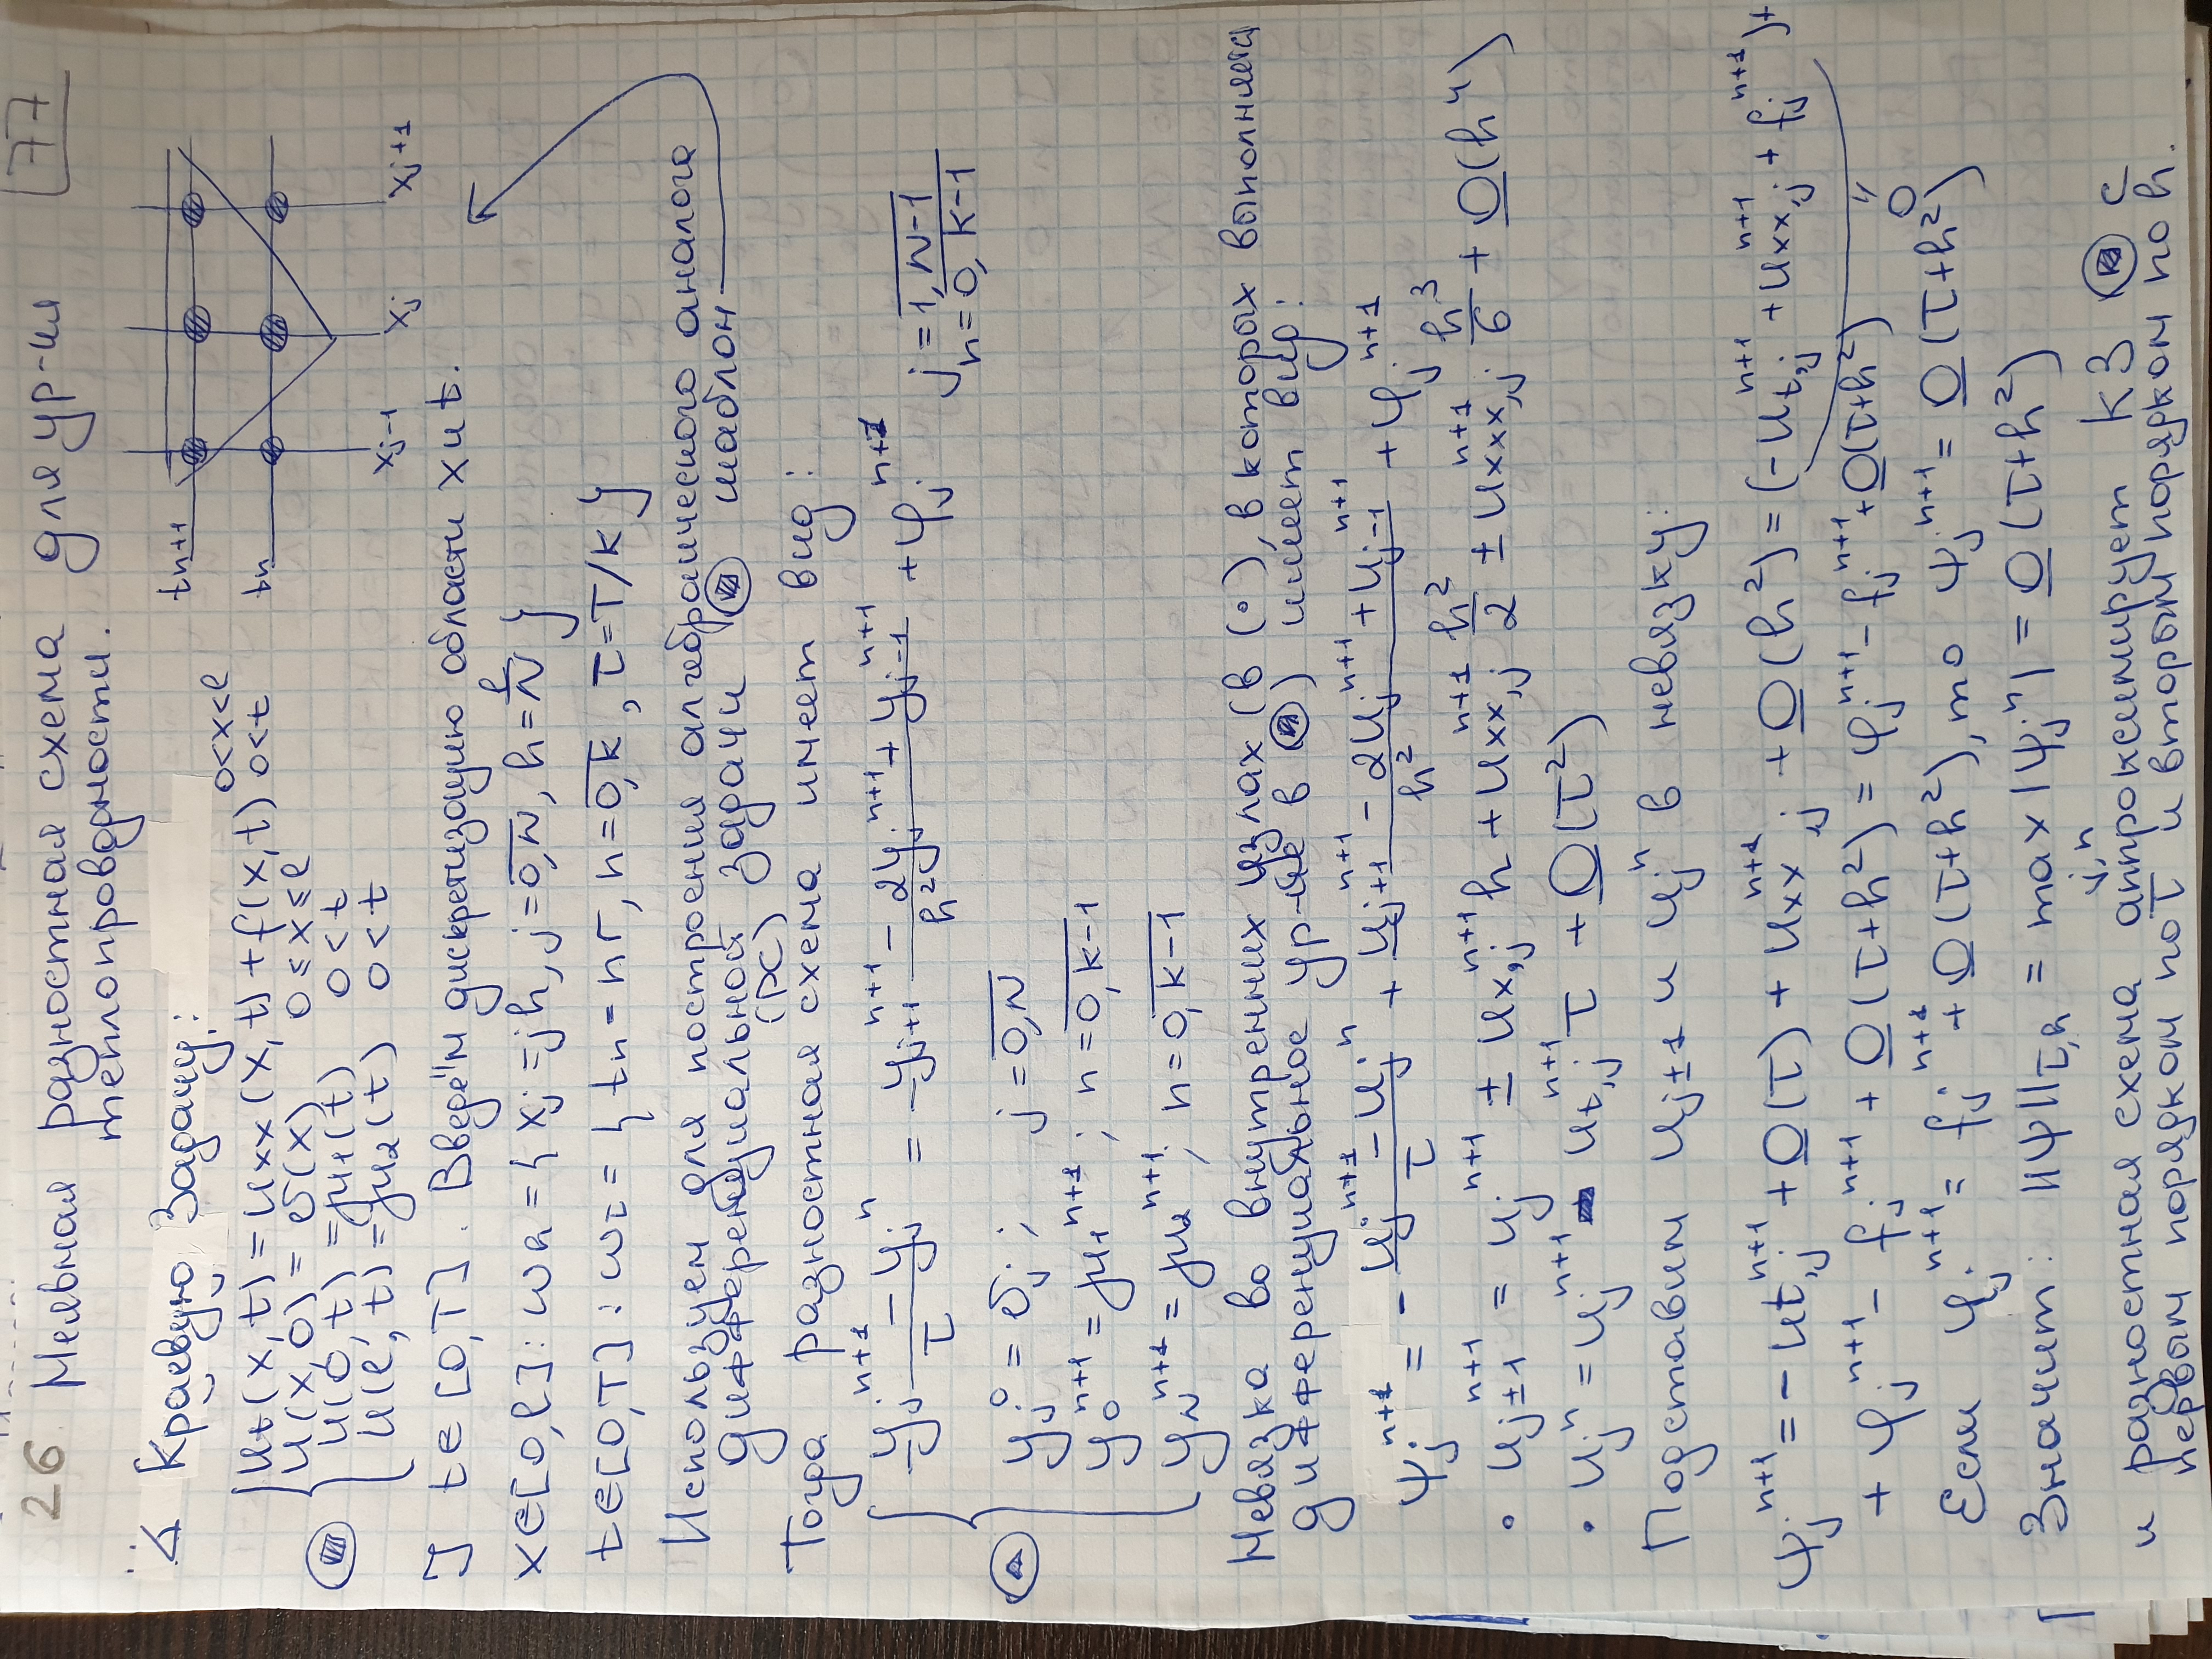 77
26 Неявная разностная схема для ур-ия
теплопроводности.
∠ Краевую Задачу:
tn+1
tn
xj-1 xj xj+1
ut(x,t) = uxx(x,t) + f(x,t) 0<x<l 0<t
u(x,0) = σ(x) 0≤x≤l
u(0,t) = μ1(t) 0<t
u(l,t) = μ2(t) 0<t
] t∈[0,T]. Введём дискретизацию области x и t.
x∈[0,l]: ωh = { xj = jh, j=0,N, h = l/N }
t∈[0,T]: ωτ = { tn = nτ, n=0,k, τ=T/k }
Используем для построения алгебраического аналога
дифференциальной задачи шаблон
(РС)
Тогда разностная схема имеет вид:
(yj^n+1 - yj^n)/τ = (yj+1^n+1 - 2yj^n+1 + yj-1^n+1)/h² + φj^n+1 j=1,N-1 n=0,k-1
yj^0 = σj; j=0,N
y0^n+1 = μ1^n+1; n=0,k-1
yN^n+1 = μ2^n+1; n=0,k-1
Невязка во внутренних узлах (в (•), в которых выполняется
дифференциальное ур-ие в ) имеет вид:
ψj^n+1 = - (uj^n+1 - uj^n)/τ + (uj+1^n+1 - 2uj^n+1 + uj-1^n+1)/h² + φj^n+1
• uj±1^n+1 = uj^n+1 ± ux,j^n+1 h + uxx,j^n+1 h²/2 ± uxxx,j^n+1 h³/6 + O(h⁴)
• uj^n = uj^n+1 - ut,j^n+1 τ + O(τ²)
Подставим uj±1 и uj^n в невязку:
ψj^n+1 = - ut,j^n+1 + O(τ) + uxx,j^n+1 + O(h²) = (-ut,j^n+1 + uxx,j^n+1 + fj^n+1) +
+ φj^n+1 - fj^n+1 + O(τ+h²) = φj^n+1 - fj^n+1 + O(τ+h²) " 0
Если φj^n+1 = fj^n+1 + O(τ+h²), то ψj^n+1 = O(τ+h²)
Значит: ||ψ||τ,h = max |ψj^n| = O(τ+h²)
j,n
и разностная схема аппроксимирует КЗ с
первым порядком по τ и вторым порядком по h.